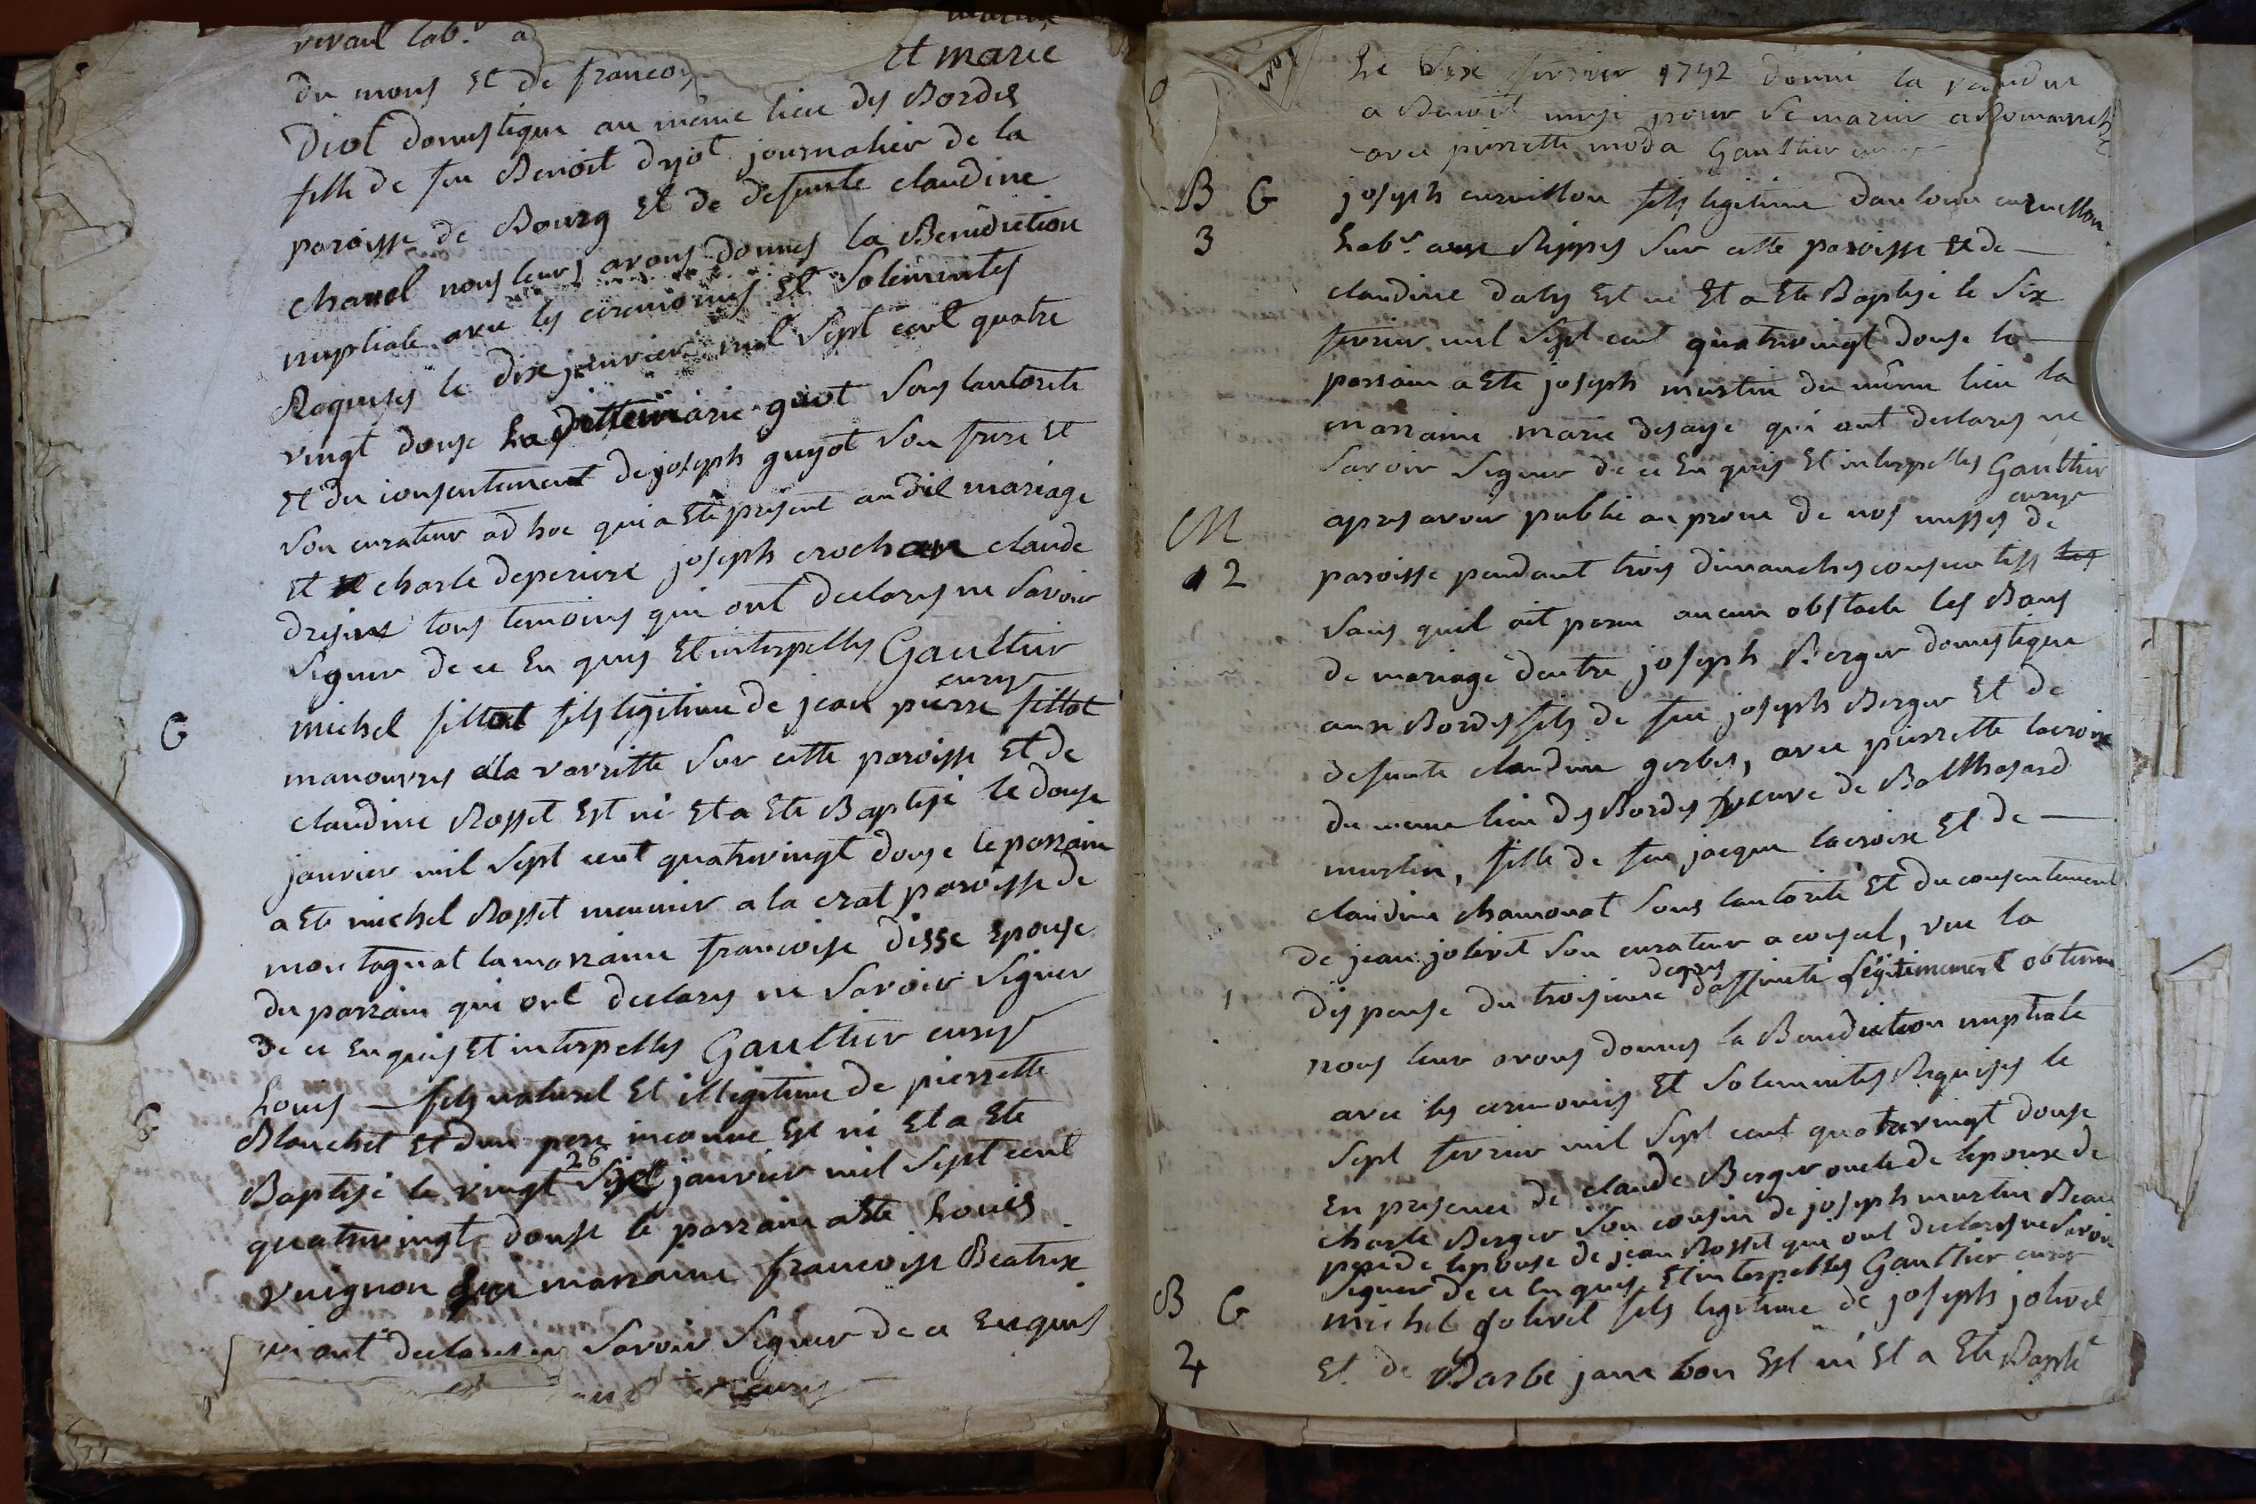 du mons Et de francoi
Et marie
Diot domestique au même lieu des Bordes
fille de feu Benoit dyot journalier de la
paroisse de Bourg Et de defunte claudine
chanel nous leurs avons donnes la Benediction
nuptiale avec les ceremonies Et Solemnites
Requises le dix janvier mil Sept cent quatre
vingt douse La ditte marie guiot Sous lautorite
Et du consentement de joseph guyot Son frere Et
Son curateur ad hoc qui a Ete present au dit mariage
Et charle deperiere joseph crochan claude
tous temoins qui ont declares ne Savoir
Signer de ce En quis Et interpelles Gaultier
curé
G
michel fillot fils legitime de jean pierre fillot
manouvres a la varritte Sur cette paroisse Et de
claudine Rosset Est né Et a Ete Baptisé le douse
janvier mil Sept cent quatrevingt douse le parrain
a Ete michel Rosset meunier a la crat paroisse de
montagnat la marraine francoise disse Epouse
du parrain qui ont declares ne Savoir Signer
de ce Enquis Et interpelles Gaultier curé
G
Louis — fils naturel Et illegitime de pierrette
Blanchet Et dun pere inconnu Est né Et a Ete
Baptisé le vingt Six 26 janvier mil Sept cent
quatrevingt douse le parrain a Ete Louis
vuignon La marraine francoise Beatrix
qui ont declares ne Savoir Signer de ce Enquis
curé
Le Six fevrier 1792 donné la
a Benoit pour Se marier a Romaneche
avec pierrette moda Gaultier curé
B G
3
joseph curnillon fils legitime dantoine curnillon
Lab.r aux Rippes Sur cette paroisse Et de —
claudine dalys Est né Et a Ete Baptisé le Six
fevrier mil Sept cent quatrevingt douse le —
parrain a Ete joseph murtin du même lieu la
marraine marie desaye qui ont declares ne
Savoir Signer de ce En quis Et interpelles Gaultier
curé
M
2
apres avoir publié au prone de nos messes de
paroisse pendant trois dimanches consecutifs
Sans quil ait paru aucun obstacle les Bans
de mariage dentre joseph Berger domestique
aux Bordes fils de feu joseph Berger Et de
defunte claudine gerbes, avec pierrette lacroix
du meme lieu des Bordes veuve de Balthasard
murtin, fille de feu jacque lacroix Et de —
claudine chamonat Sous lautorite Et du consentement
de jean jolivet Son curateur a conseil, vue la
dispense du troisieme degres daffinité légitimement obtenue
nous leur avons donnes la Benediction nuptiale
avec les ceremonies Et Solemnites Requises le
Sept fevrier mil Sept cent quatrevingt douse
En presence de claude Berger oncle de lepoux de
charle Berger Son cousin de joseph murtin Beau
pere de lepouse de jean Rosset qui ont declares ne Savoir
Signer de ce En quis Et interpelles Gaultier curé
B G
4
michel jolivet fils legitime de joseph jolivet
Et de Barbe jambon Est né Et a Ete Baptisé